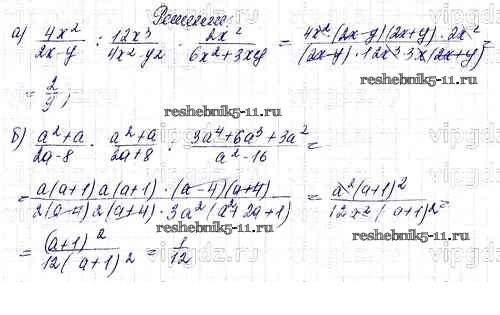 Решение:
а) 4x²/(2x-y) : 12x³/(4x²-y²) · 2x²/(6x²+3xy) = 4x²(2x-y)(2x+y)·2x²/((2x-y)·12x³·3x(2x+y)) =
= 2/9;
reshebnik5-11.ru
reshebnik5-11.ru
б) (a²+a)/(2a-8) · (a²+a)/(2a+8) : (3a⁴+6a³+3a²)/(a²-16) =
= a(a+1)a(a+1)·(a-4)(a+4)/(2(a-4)2(a+4)·3a²(a²+2a+1)) = a²(a+1)²/(12a²(a+1)²) =
reshebnik5-11.ru
reshebnik5-11.ru
= (a+1)²/(12(a+1)²) = 1/12
vipgdz.ru